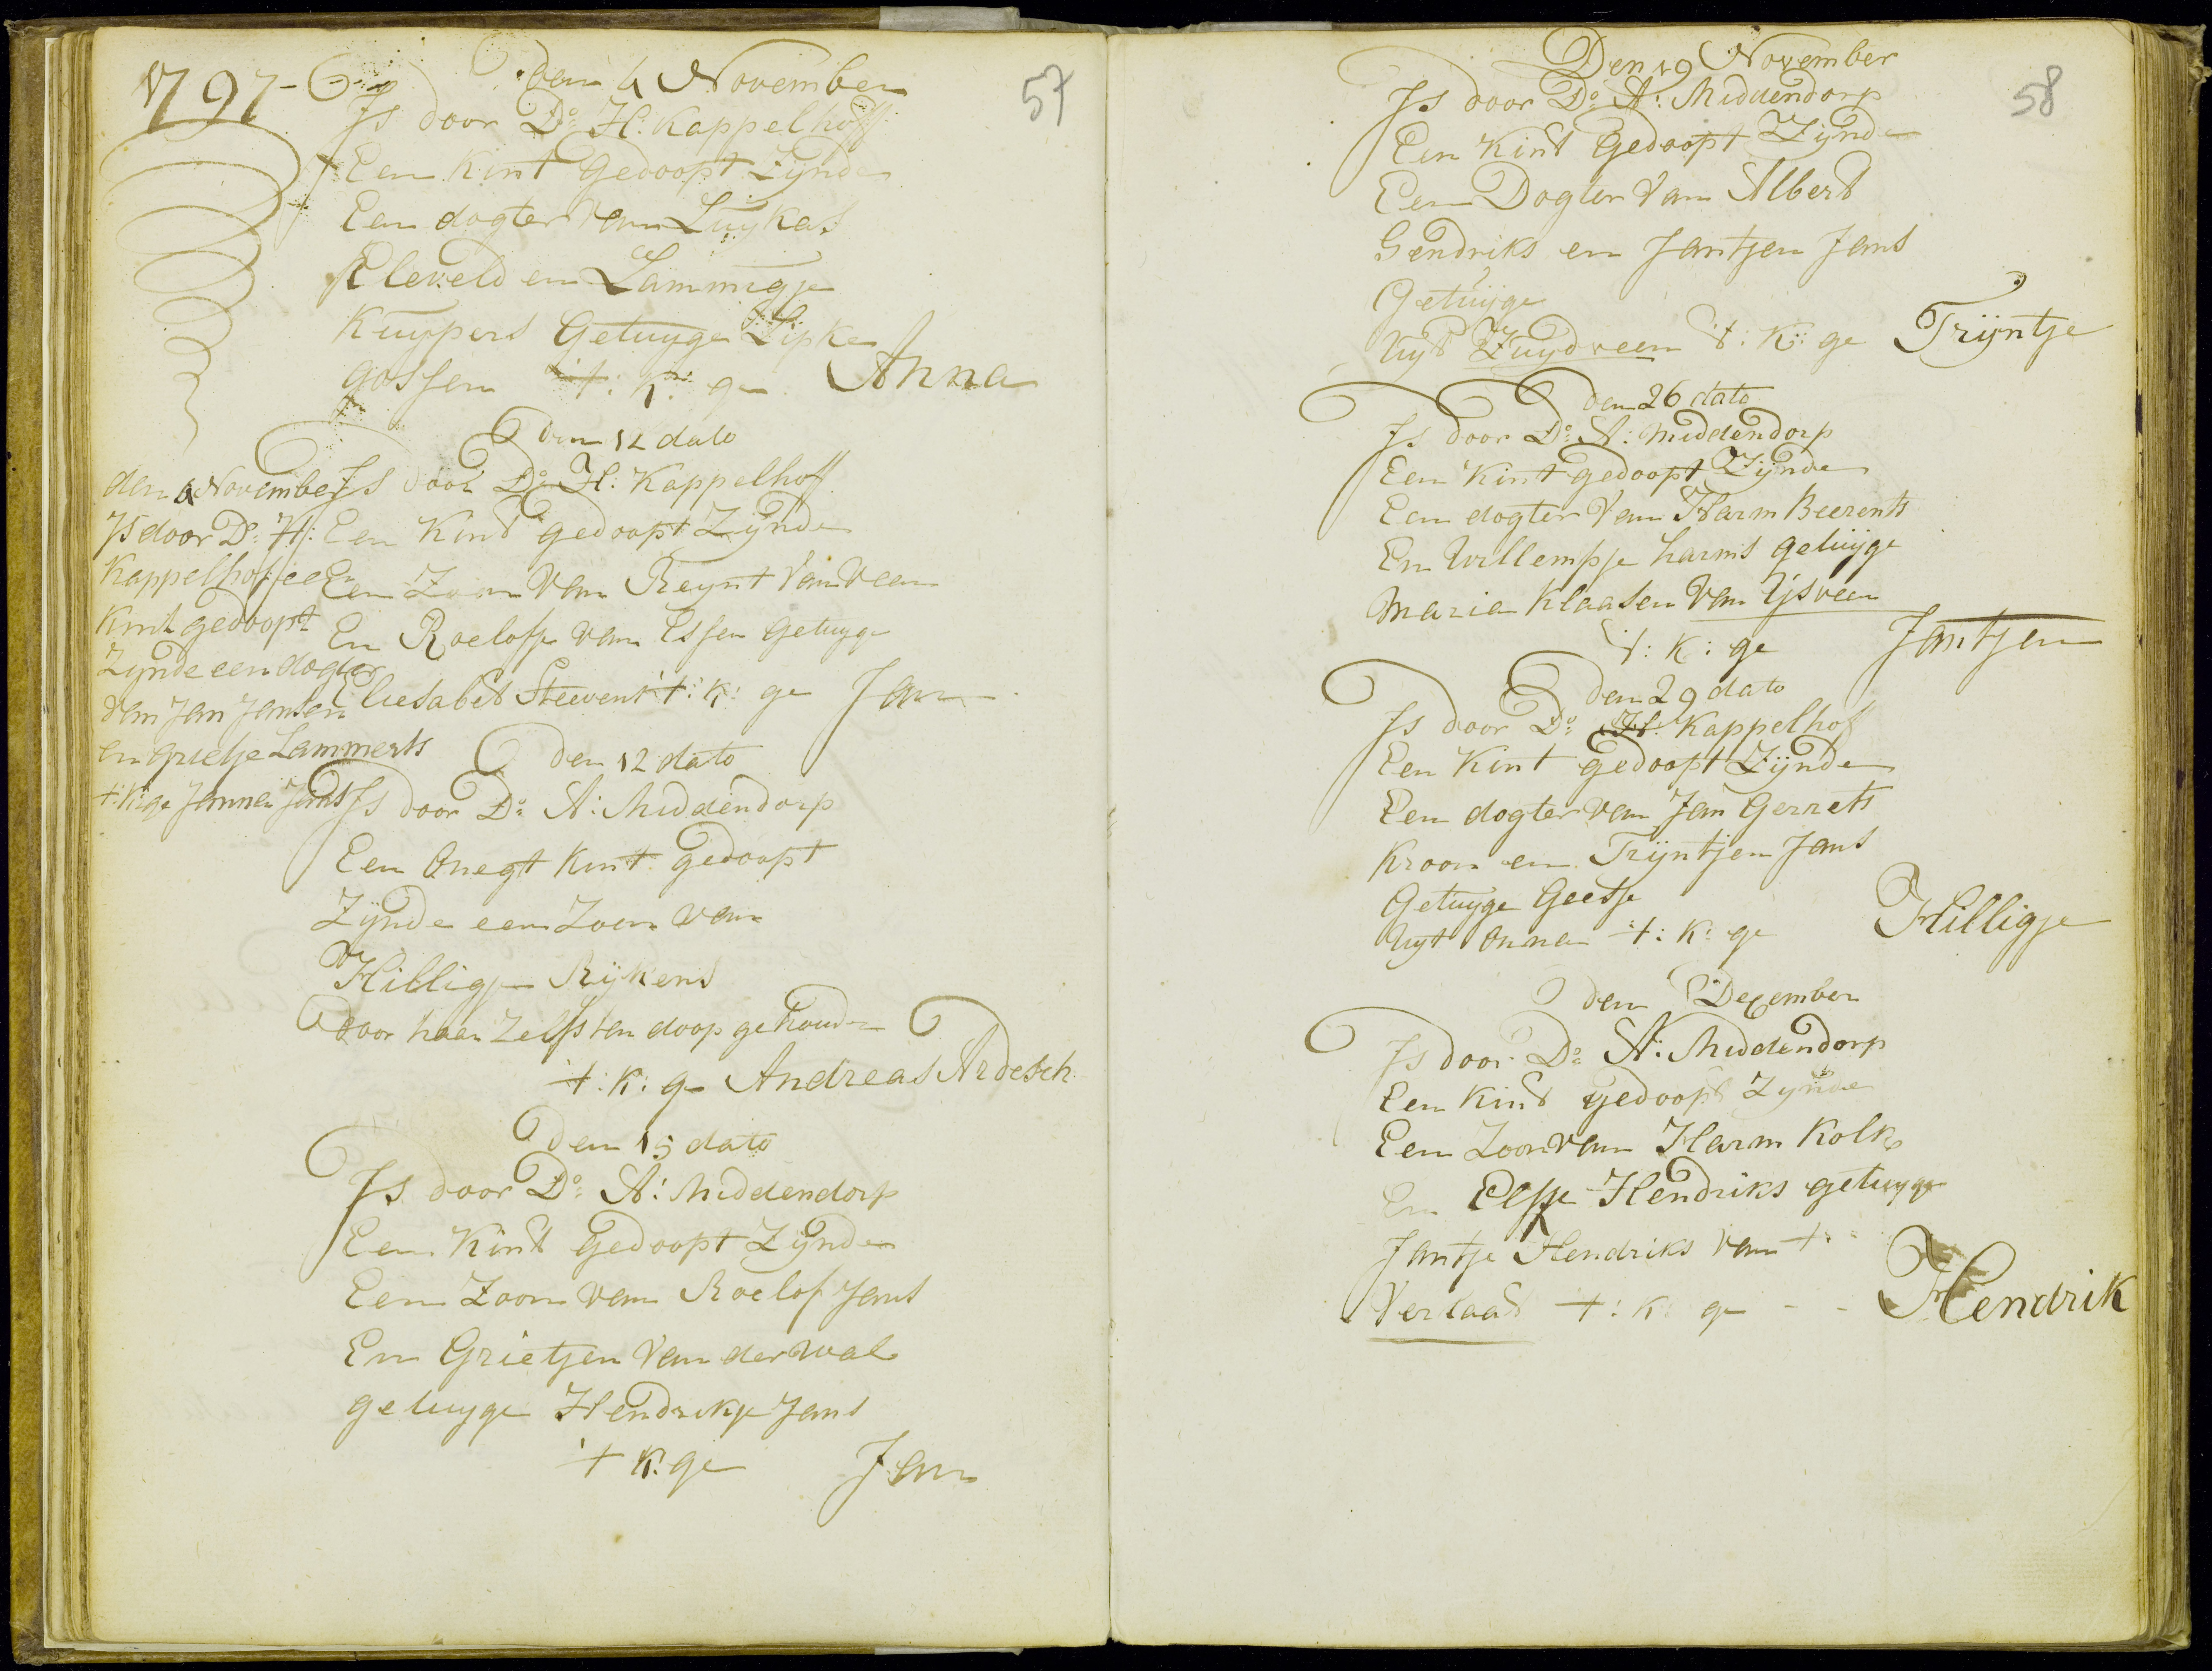 1797-
57
den 4 November
Js door Do: H: Kappelhoff
Een Kint gedoopt Zijnde
Een dogter van Luykas
Kleveld en Lammigje
Kuypers Getuyge Lipke
gossen t: K: ge Anna
den 12 dato
Js door Do: H: Kappelhoff
Een Kint gedoopt Zijnde
Een Zoon van Reynt van veen
En Roelofje van Essen getuyge
Eliesabet Steevens t: K: ge Jan
den November
Js door Do: H:
Kappelhof een
Kint gedoopt
Zijnde een dogter
van Jan Jansen
en grietje Lammerts
t: K: ge Janna Jans
den 12 dato
Js door Do: A: Middendorp
Een Onegt Kint gedoopt
Zijnde een Zoon van
Hilligje Rijkens
door haar Zelfs ten doop gehouden
t: K: ge Andreas Ardesch
den 15 dato
Js door Do: A: Middendorp
Een Kint Gedoopt Zijnde
Een Zoon van Roelof Jans
En Grietjen van der wal
getuyge Hendrikje Jans
t K: ge Jan
58
Den 19 November
Js door Do: A: Middendorp
Een Kint Gedoopt Zijnde
Een Dogter van Albert
Hendriks en Jantjen Jans
Getuijge
Uyt Zuydveen t: K: ge Trijntje
den 26 dato
Js door Do: A: Middendorp
Een Kint gedoopt Zijnde
Een dogter van Harm Beerents
En Willempje harms getuijge
Maria Klaasen van IJsveen
t: K: ge Jantjen
den 29 dato
Js door Do: H: Kappelhof
Een Kint gedoopt Zijnde
Een dogter van Jan Gerrets
Kroon en Trijntjen Jans
Getuyge Geesje
Uyt Onna t: K: ge Hilligje
den December
Js door Do: A: Middendorp
Een Kint gedoopt Zijnde
Een Zoon van Harm Kolk
En Elsje Hendriks getuyge
Jantje Hendriks van t
Verlaat t: K: ge - - Hendrik